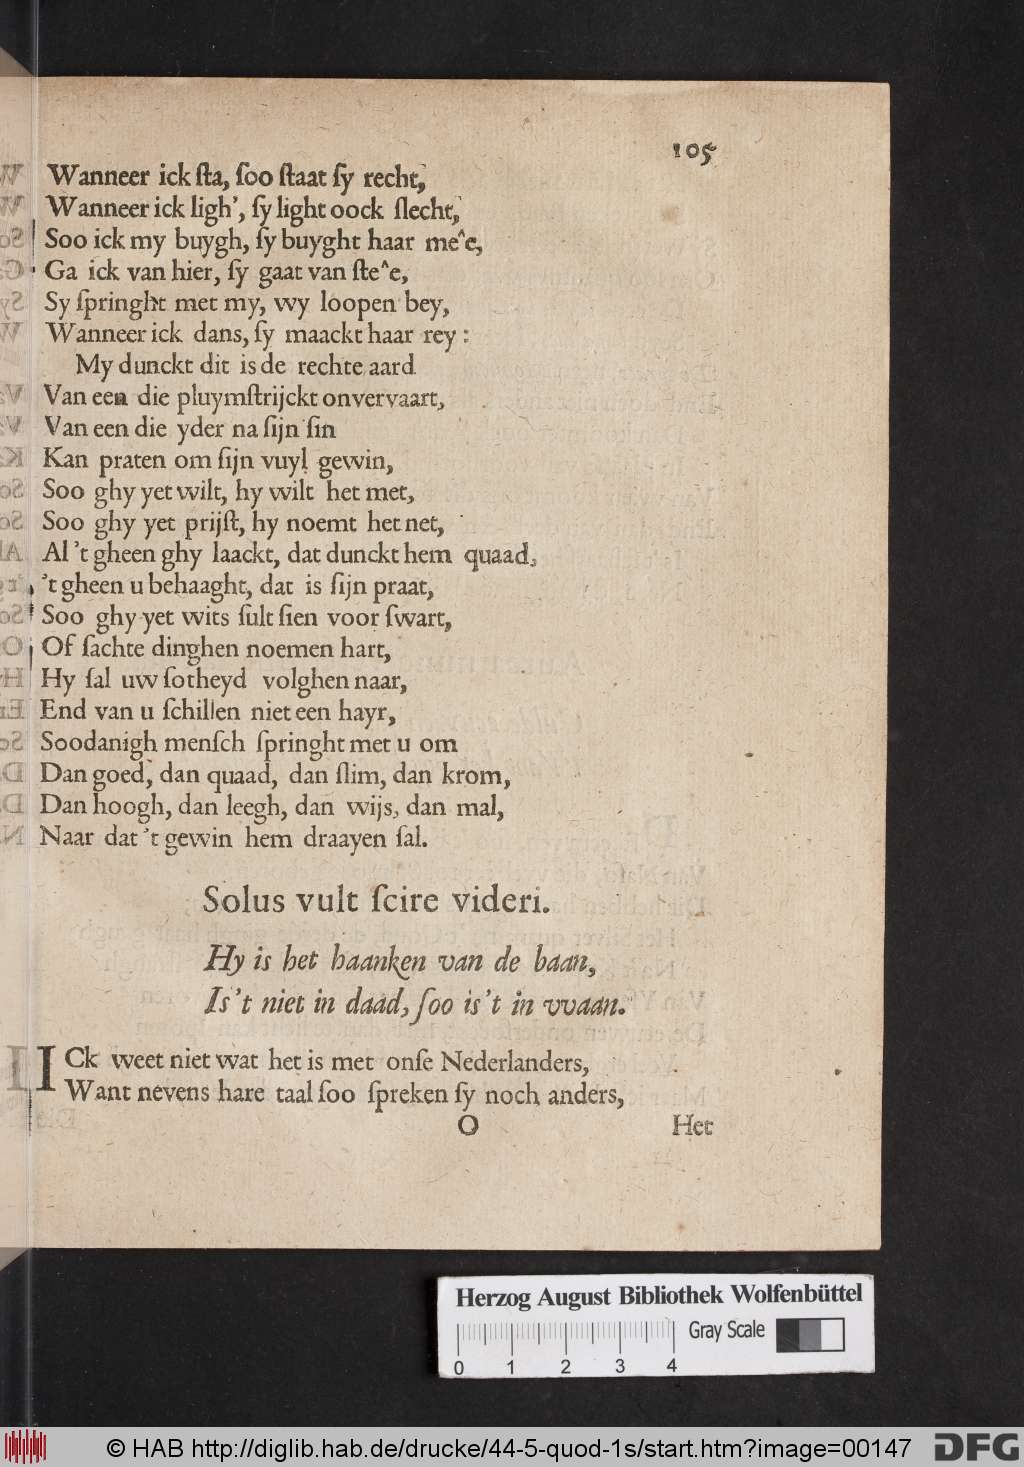 105
Wanneer ick ſta, ſoo ſtaat ſy recht,
Wanneer ick ligh’, ſy light oock ſlecht,
Soo ick my buygh, ſy buyght haar me^e,
Ga ick van hier, ſy gaat van ſte^e,
Sy ſpringht met my, wy loopen bey,
Wanneer ick dans, ſy maackt haar rey :
My dunckt dit is de rechte aard
Van een die pluymſtrijckt onvervaart,
Van een die yder na ſijn ſin
Kan praten om ſijn vuyl gewin,
Soo ghy yet wilt, hy wilt het met,
Soo ghy yet prijſt, hy noemt het net,
Al ’t gheen ghy laackt, dat dunckt hem quaad,
’t gheen u behaaght, dat is ſijn praat,
Soo ghy yet wits ſult ſien voor ſwart,
Of ſachte dinghen noemen hart,
Hy ſal uw ſotheyd volghen naar,
End van u ſchillen niet een hayr,
Soodanigh menſch ſpringht met u om
Dan goed, dan quaad, dan ſlim, dan krom,
Dan hoogh, dan leegh, dan wijs, dan mal,
Naar dat ’t gewin hem draayen ſal.
Solus vult ſcire videri.
Hy is het haanken van de baan,
Is’t niet in daad, ſoo is’t in vvaan.
ICk weet niet wat het is met onſe Nederlanders,
Want nevens hare taal ſoo ſpreken ſy noch anders,
O Het
Herzog August Bibliothek Wolfenbüttel
Gray Scale
0 1 2 3 4
© HAB http://diglib.hab.de/drucke/44-5-quod-1s/start.htm?image=00147
DFG